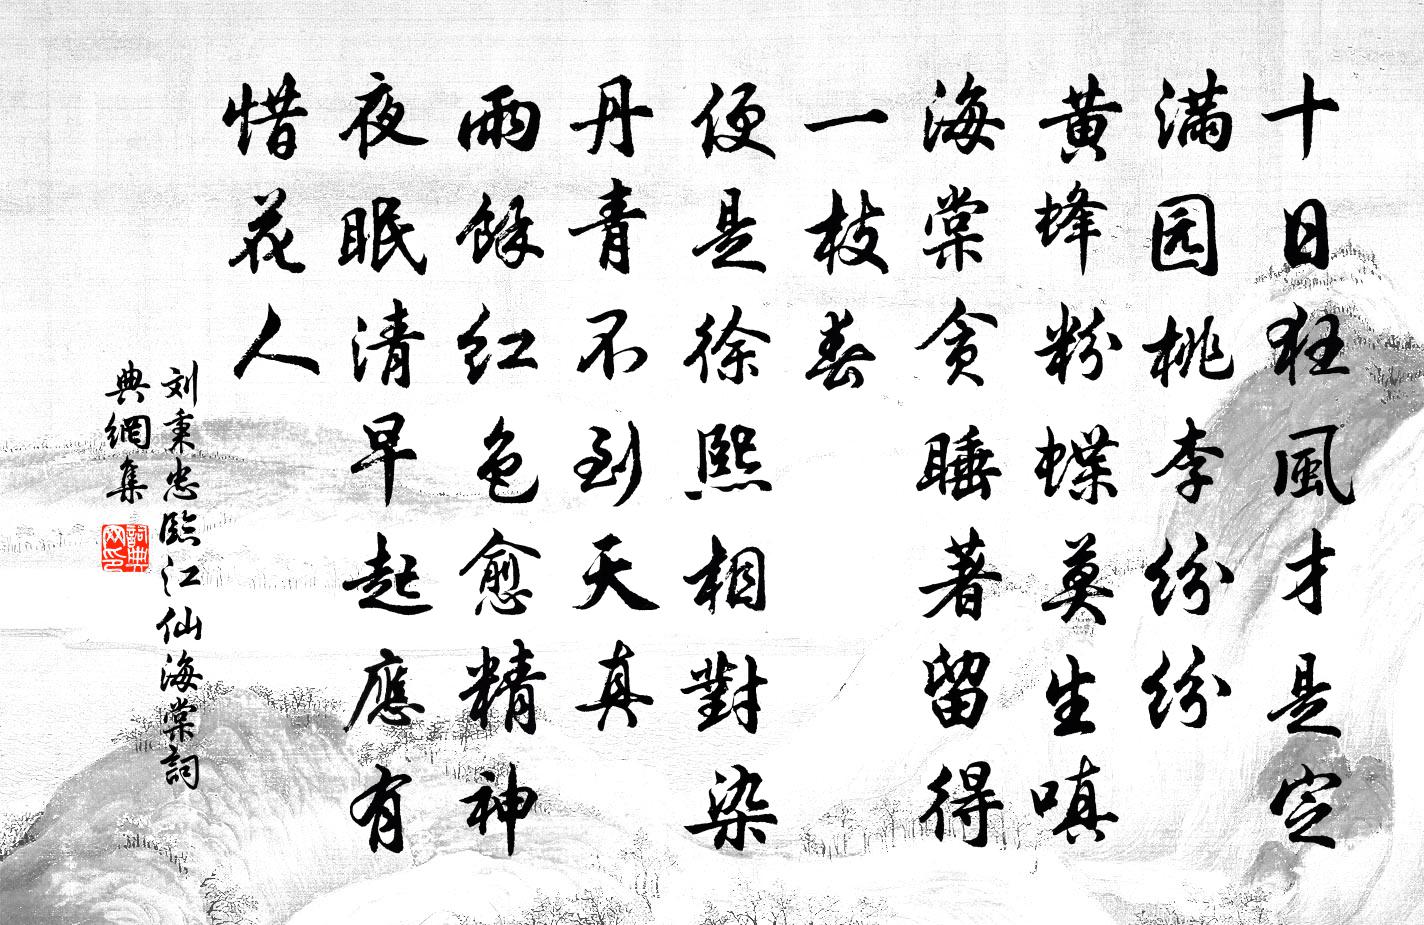 十日狂風才是定
滿园桃李纷纷
黄蜂粉蝶莫生嗔
海棠贪睡著留得
一枝春
便是徐熙相對染
丹青不到天真
雨餘红色愈精神
夜眠清早起應有
惜花人
刘秉忠臨江仙海棠詞
典網集
詞典
网印